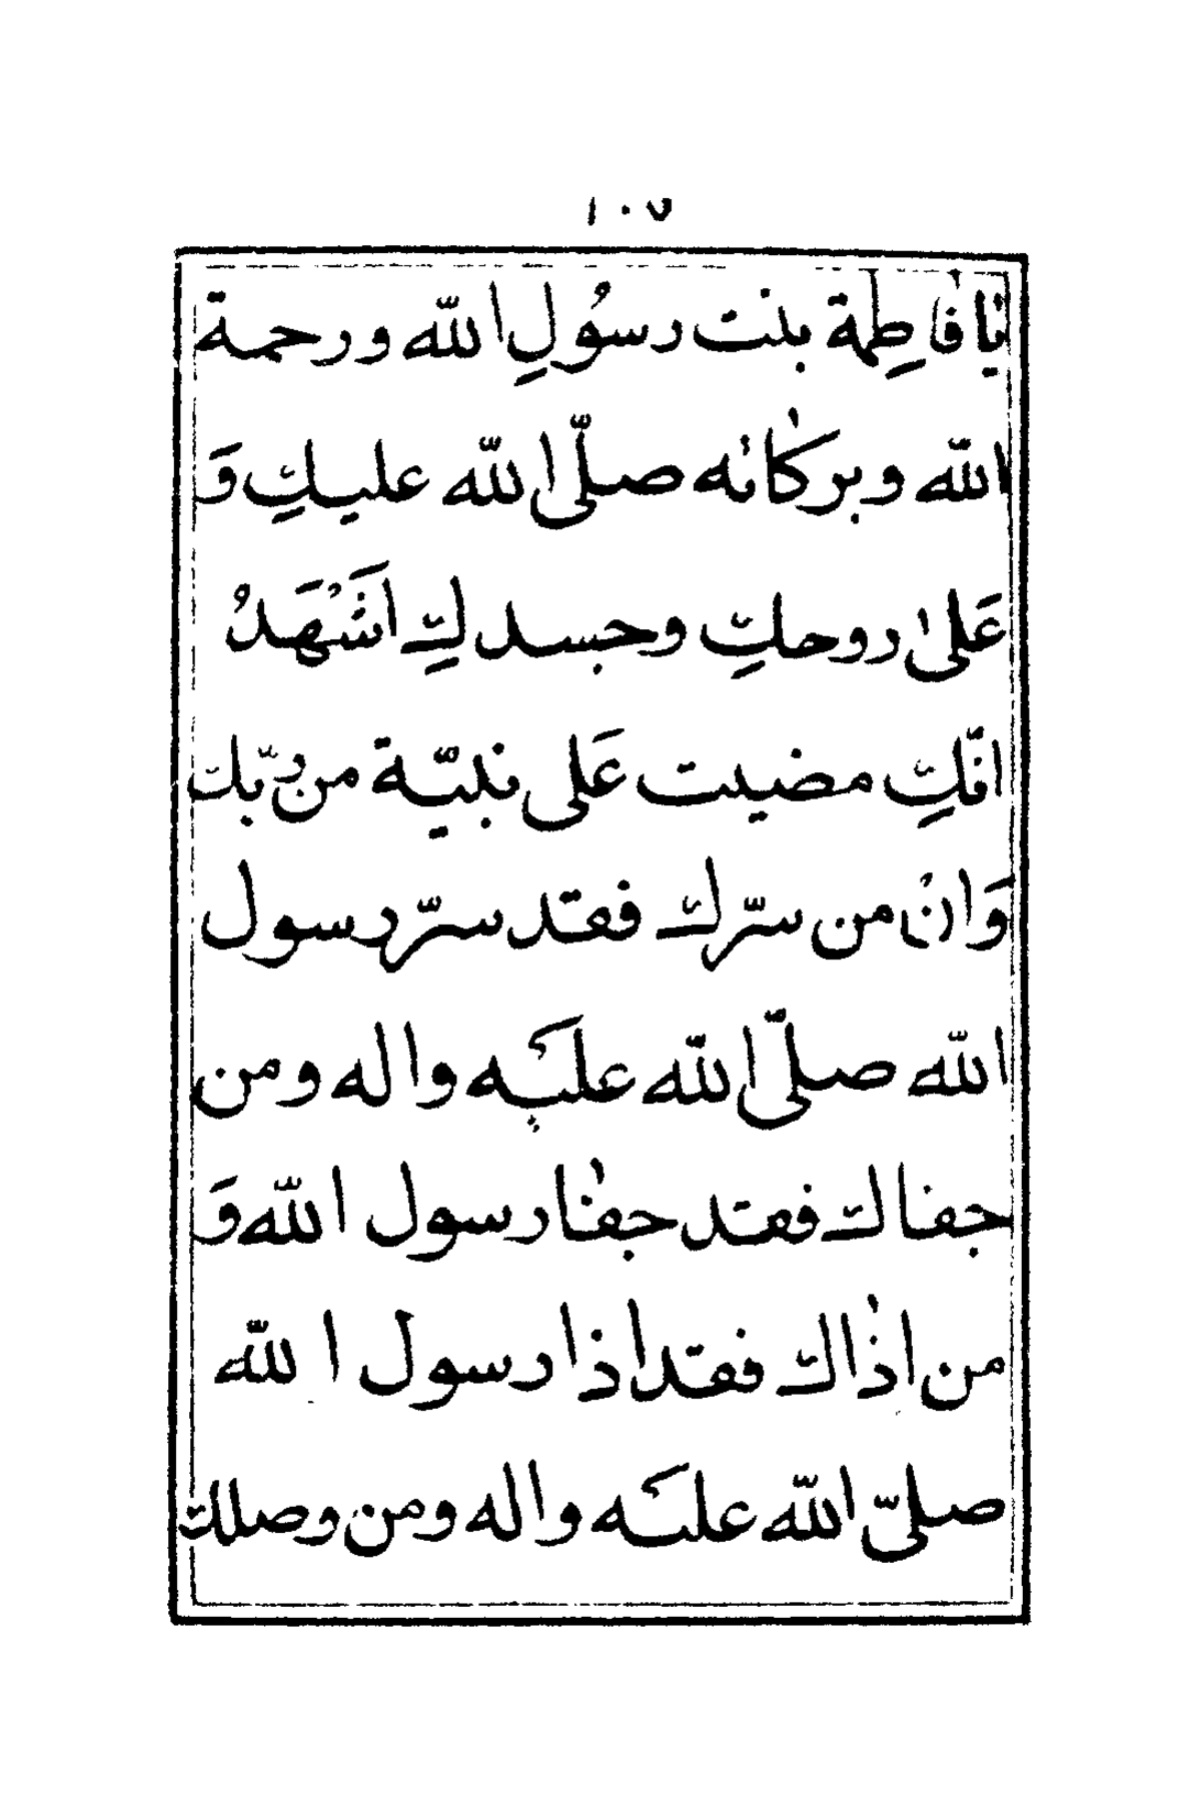 ١٠٧
يا فاطِمة بنت رسُولِ الله ورحمة
الله وبركاته صلّى الله عليكِ وَ
عَلى روحكِ وجسدكِ اَشْهَدُ
انّكِ مضيت عَلى بنيّة من ربّك
وَانْ من سرّك فقد سرّ رسول
الله صلّى الله عليَه واله ومن
جفاك فقد جفا رسول الله وَ
من اذاك فقد اذا رسول الله
صلىّ الله عليَه واله ومن وصلك